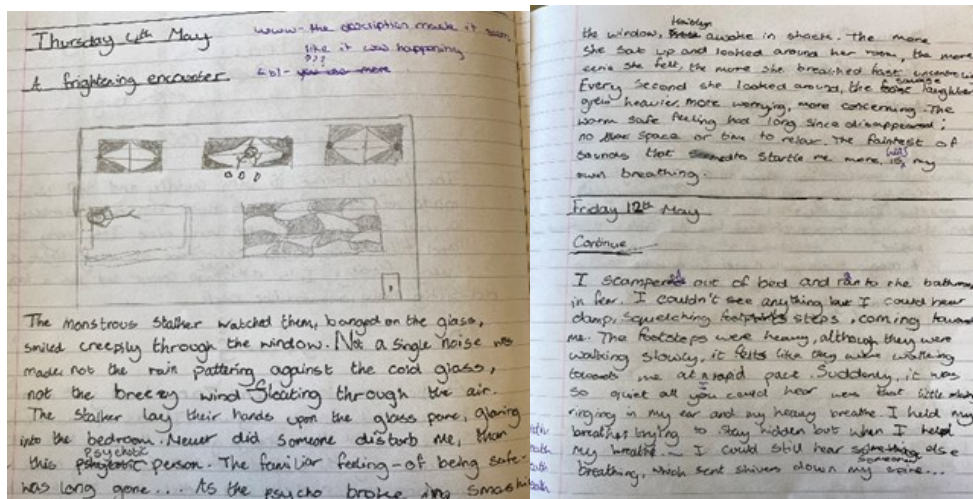 Thursday 4th May
www- the description made it seem
like it was happening
Ebl- you use more
A frightening encounter
The monstrous stalker watched them, banged on the glass,
smiled creepily through the window. Not a single noise was
made, not the rain pattering against the cold glass,
not the breezy wind Sleating through the air.
The stalker lay their hands upon the glass pane, glaring
into the bedroom. Never did someone disturb me, than
this psychotic person. The familiar feeling-of being safe-
was long gone... As the psycho broke ing smashi
the window, Kaidyn awoke in shock. The more
she sat up and looked around her room, the more
eerie she felt, the more she breathed fast
Every second she looked around, the savage laughter
grew heavier, more worrying, more concerning. The
warm safe feeling had long since disappeared;
no space or time to relax. The faintest of
sounds that seemed to startle me more, was my
own breathing.
Friday 12th May
Continue
I scampered out of bed and ran to the bathroom
in fear. I couldn't see anything but I could hear
damp, squelching steps, coming towar
me. The footsteps were heavy, although they were
walking slowly, it felt like they were walking
towards me at a rapid pace. Suddenly, it was
so quiet all you could hear was that little
ringing in my ear and my heavy breathe. I held my
breathe, trying to stay hidden but when I held
my breathe - I could still hear someone else
breathing, which sent shivers down my spine...